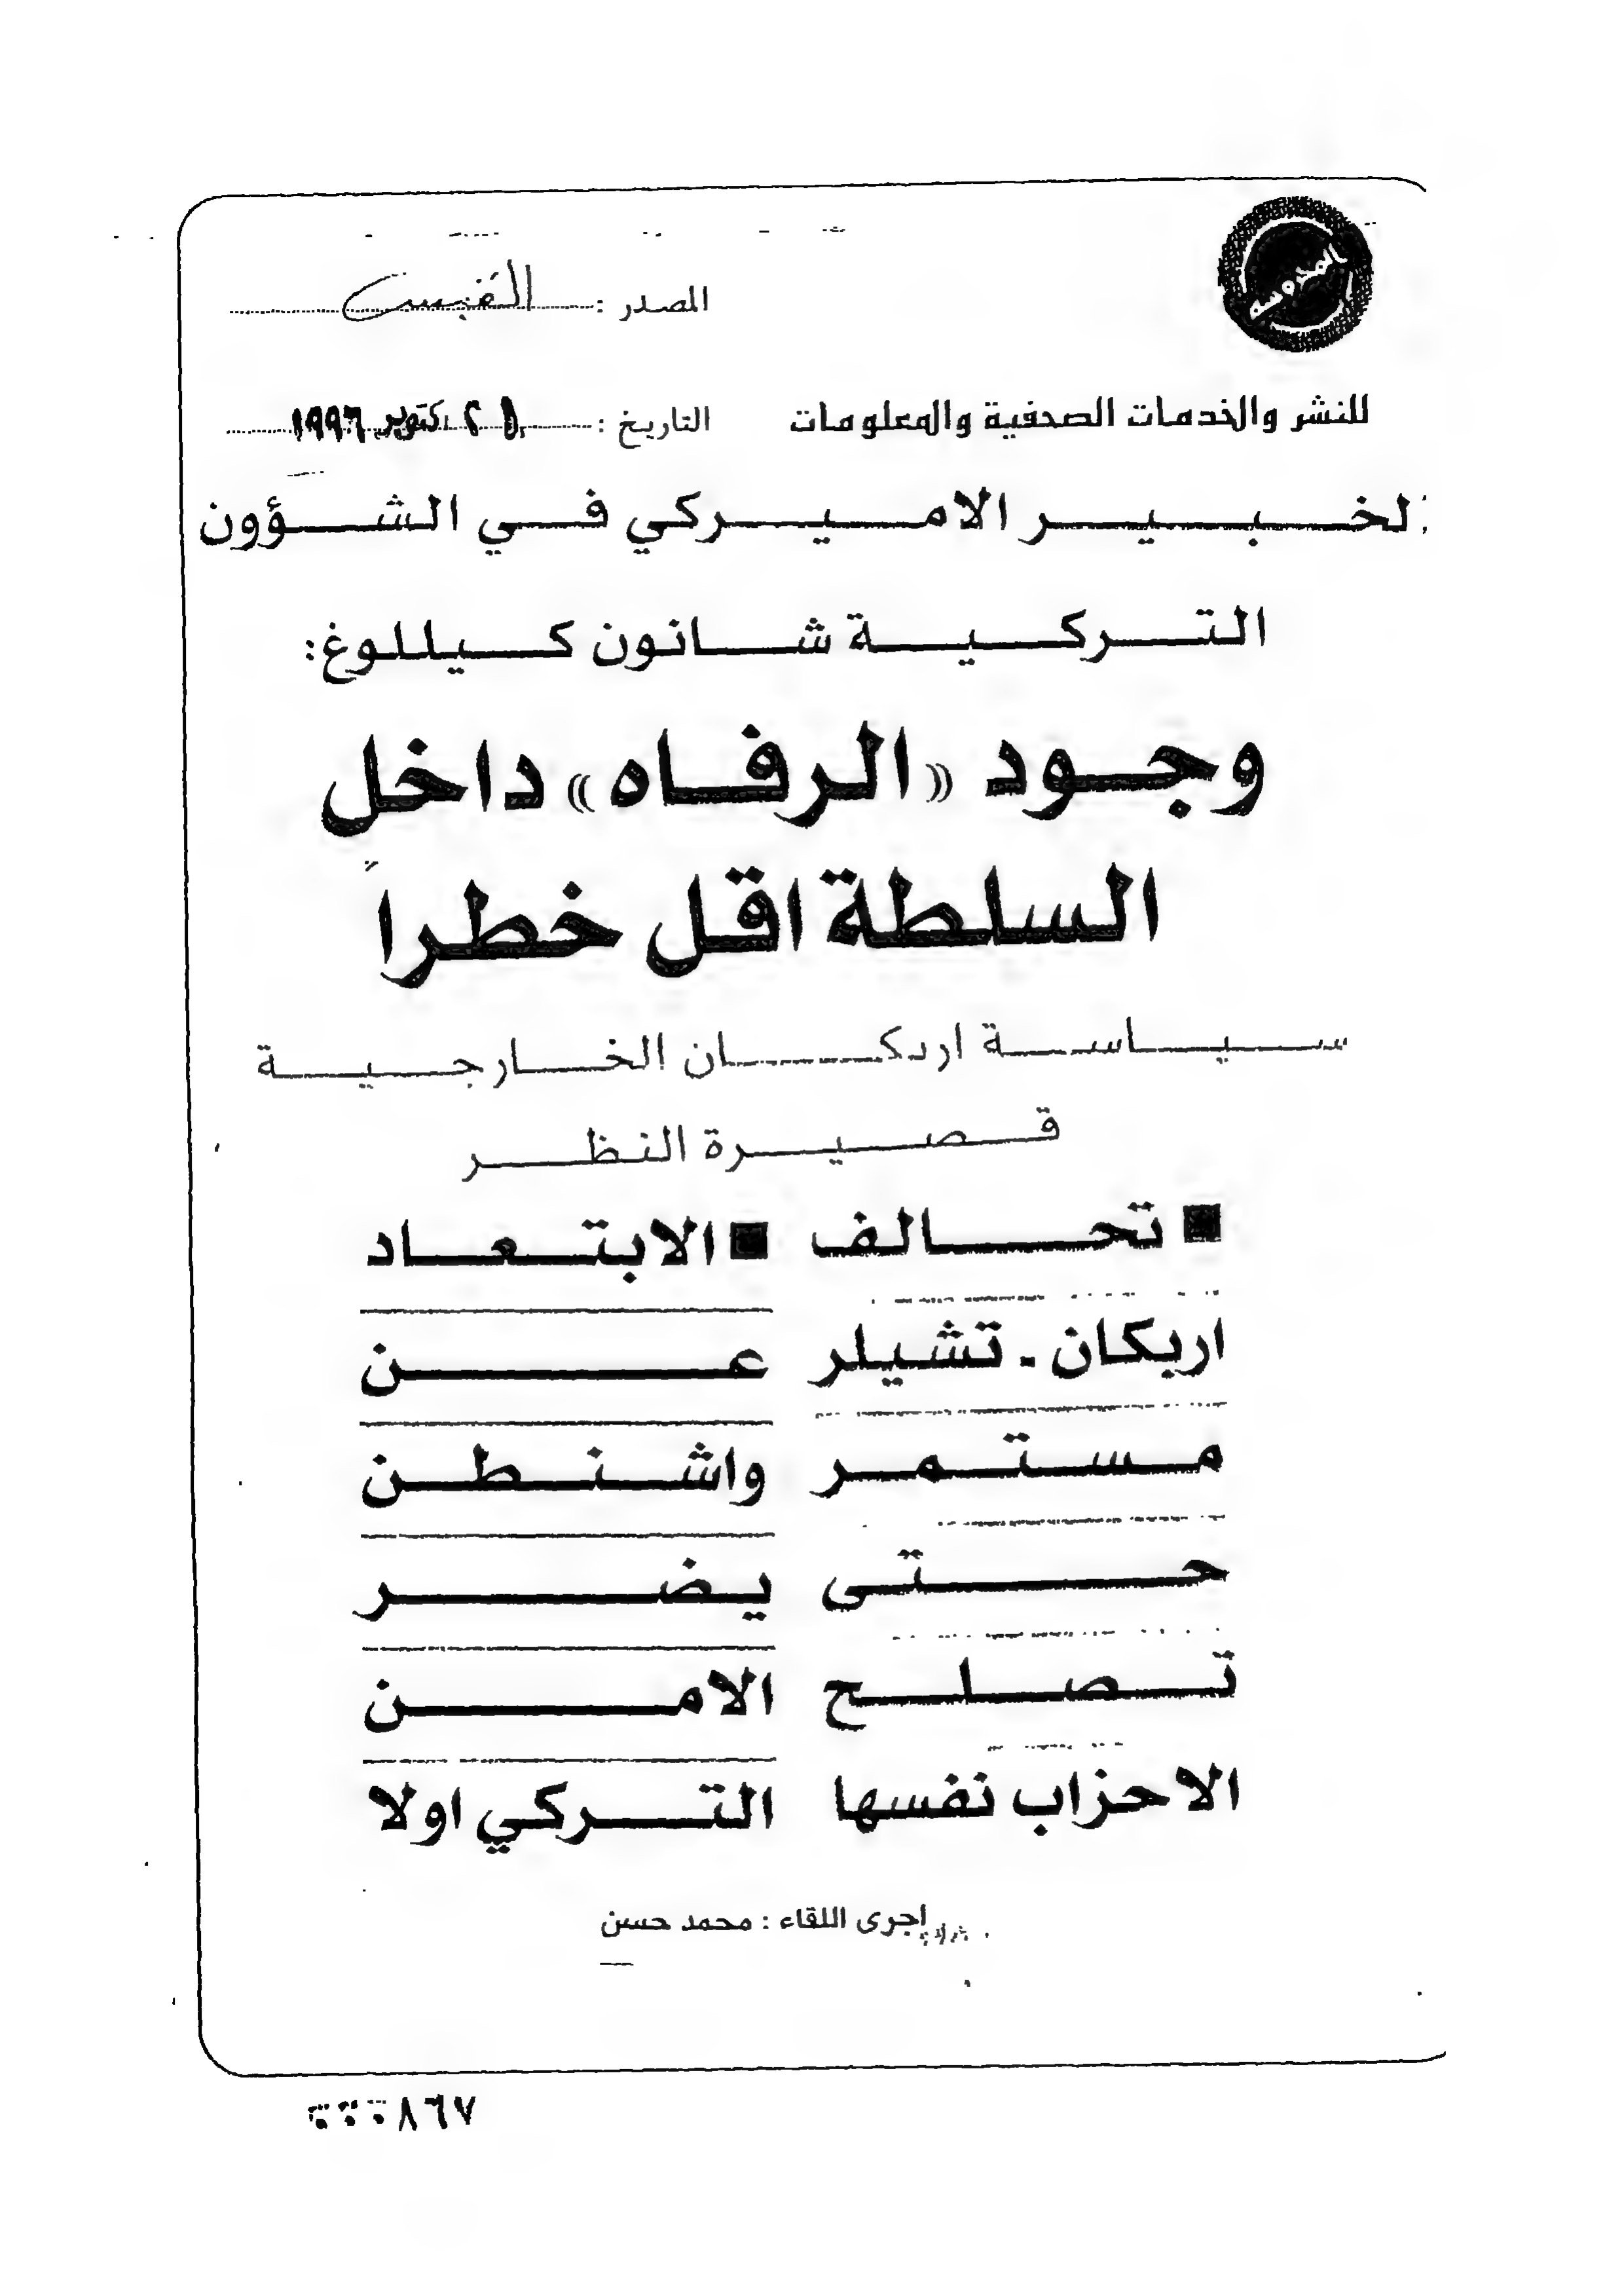 المصدر : القبس
للنشر والخدمات الصحفية والمعلومات
التاريخ : اكتوبر ١٩٩٦
لخبير الاميركي في الشؤون
التركية شانون كيللوغ:
وجود «الرفاه» داخل
السلطة اقل خطراً
سياسة اربكان الخارجية
قصيرة النظر
■ تحالف
اربكان - تشيلر
مستمر
حتى
تصلح
الاحزاب نفسها
■ الابتعاد
عن
واشنطن
يضر
الامن
التركي اولا
اجرى اللقاء : محمد حسن
٠٠٠٨٦٧